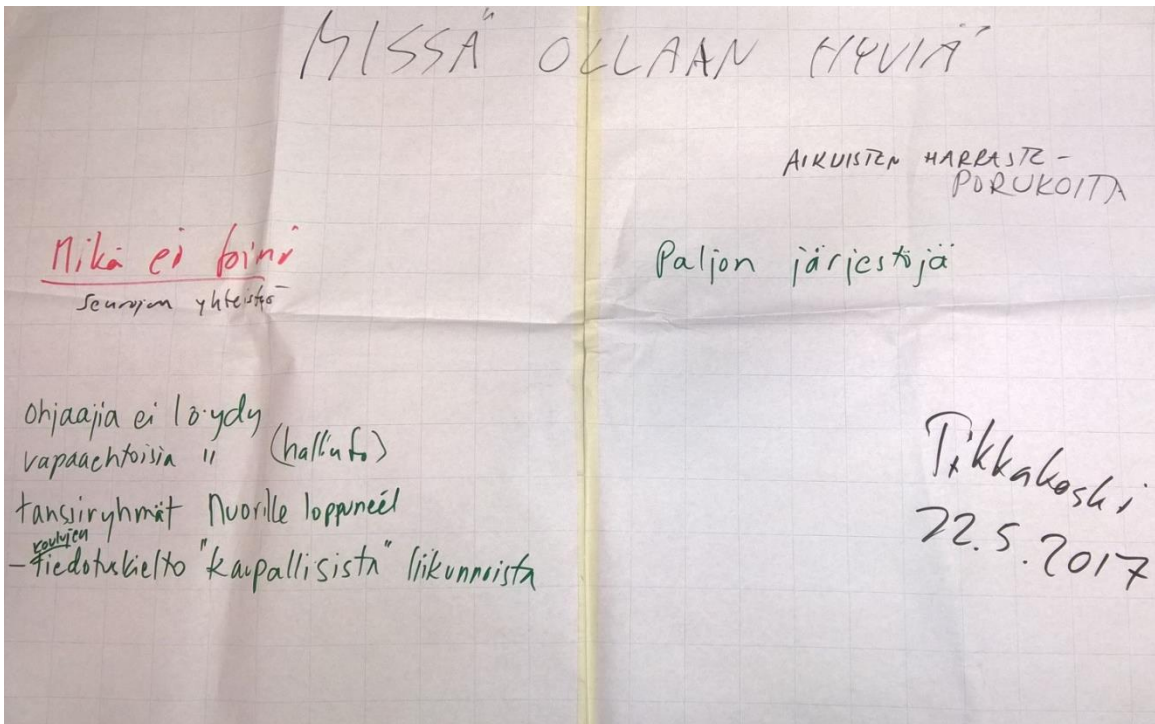 MISSÄ OLLAAN HYVIÄ
AIKUISTEN HARRASTE-
PORUKOITA
Mikä ei toimi
Seurojen yhteistyö
Paljon järjestöjä
Ohjaajia ei löydy
vapaaehtoisia " (hallinto)
tanssiryhmät Nuorille loppuneet
koulujen
- tiedotuskielto "kaupallisista" liikunnoista
Tikkakoski
22.5.2017